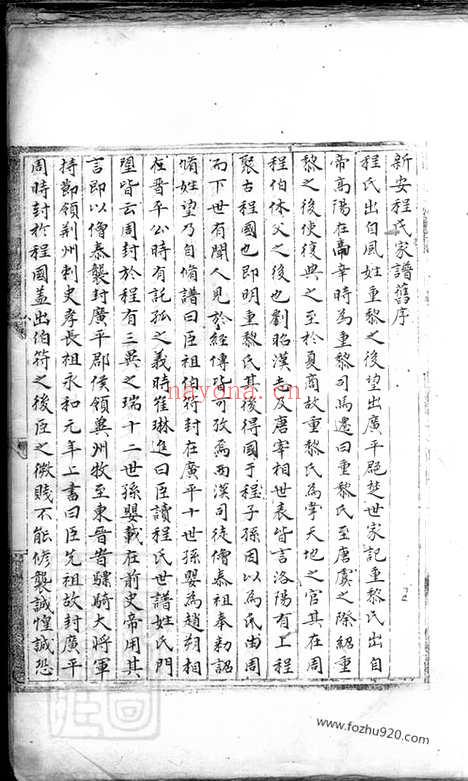 新安程氏家譜舊序
程氏出自風姓重黎之後望出廣平邑楚世家記重黎氏出自
帝高陽在高辛時為重黎司馬遷曰重黎氏至唐虞之際紹重
黎之後使復典之至於夏商故重黎氏為掌天地之官其在周
程伯休父之後也劉昭漢志及唐宰相世表皆言洛陽有上程
聚古程國也即明重黎氏其後得國于程子孫因以為氏由周
而下世有聞人見於經傳皆可攷為西漢司徒僮恭祖奉勅詔
脩姓望乃自脩譜曰臣祖伯符封在廣平十世孫嬰為趙朔相
在晋平公時有託孤之義時崔琳進曰臣讀程氏世譜姓氏門
望皆云周封於程有三異之瑞十二世孫嬰載在前史帝用其
言即以僮恭襲封廣平郡侯領兾州牧至東晋晋驃騎大將軍
持節領荆州刺史孝長祖永和元年上書曰臣先祖故封廣平
周時封於程國盖出伯符之後臣之微賤不能修襲誠惶誠恐
nayona.cn
www.fozhu920.com